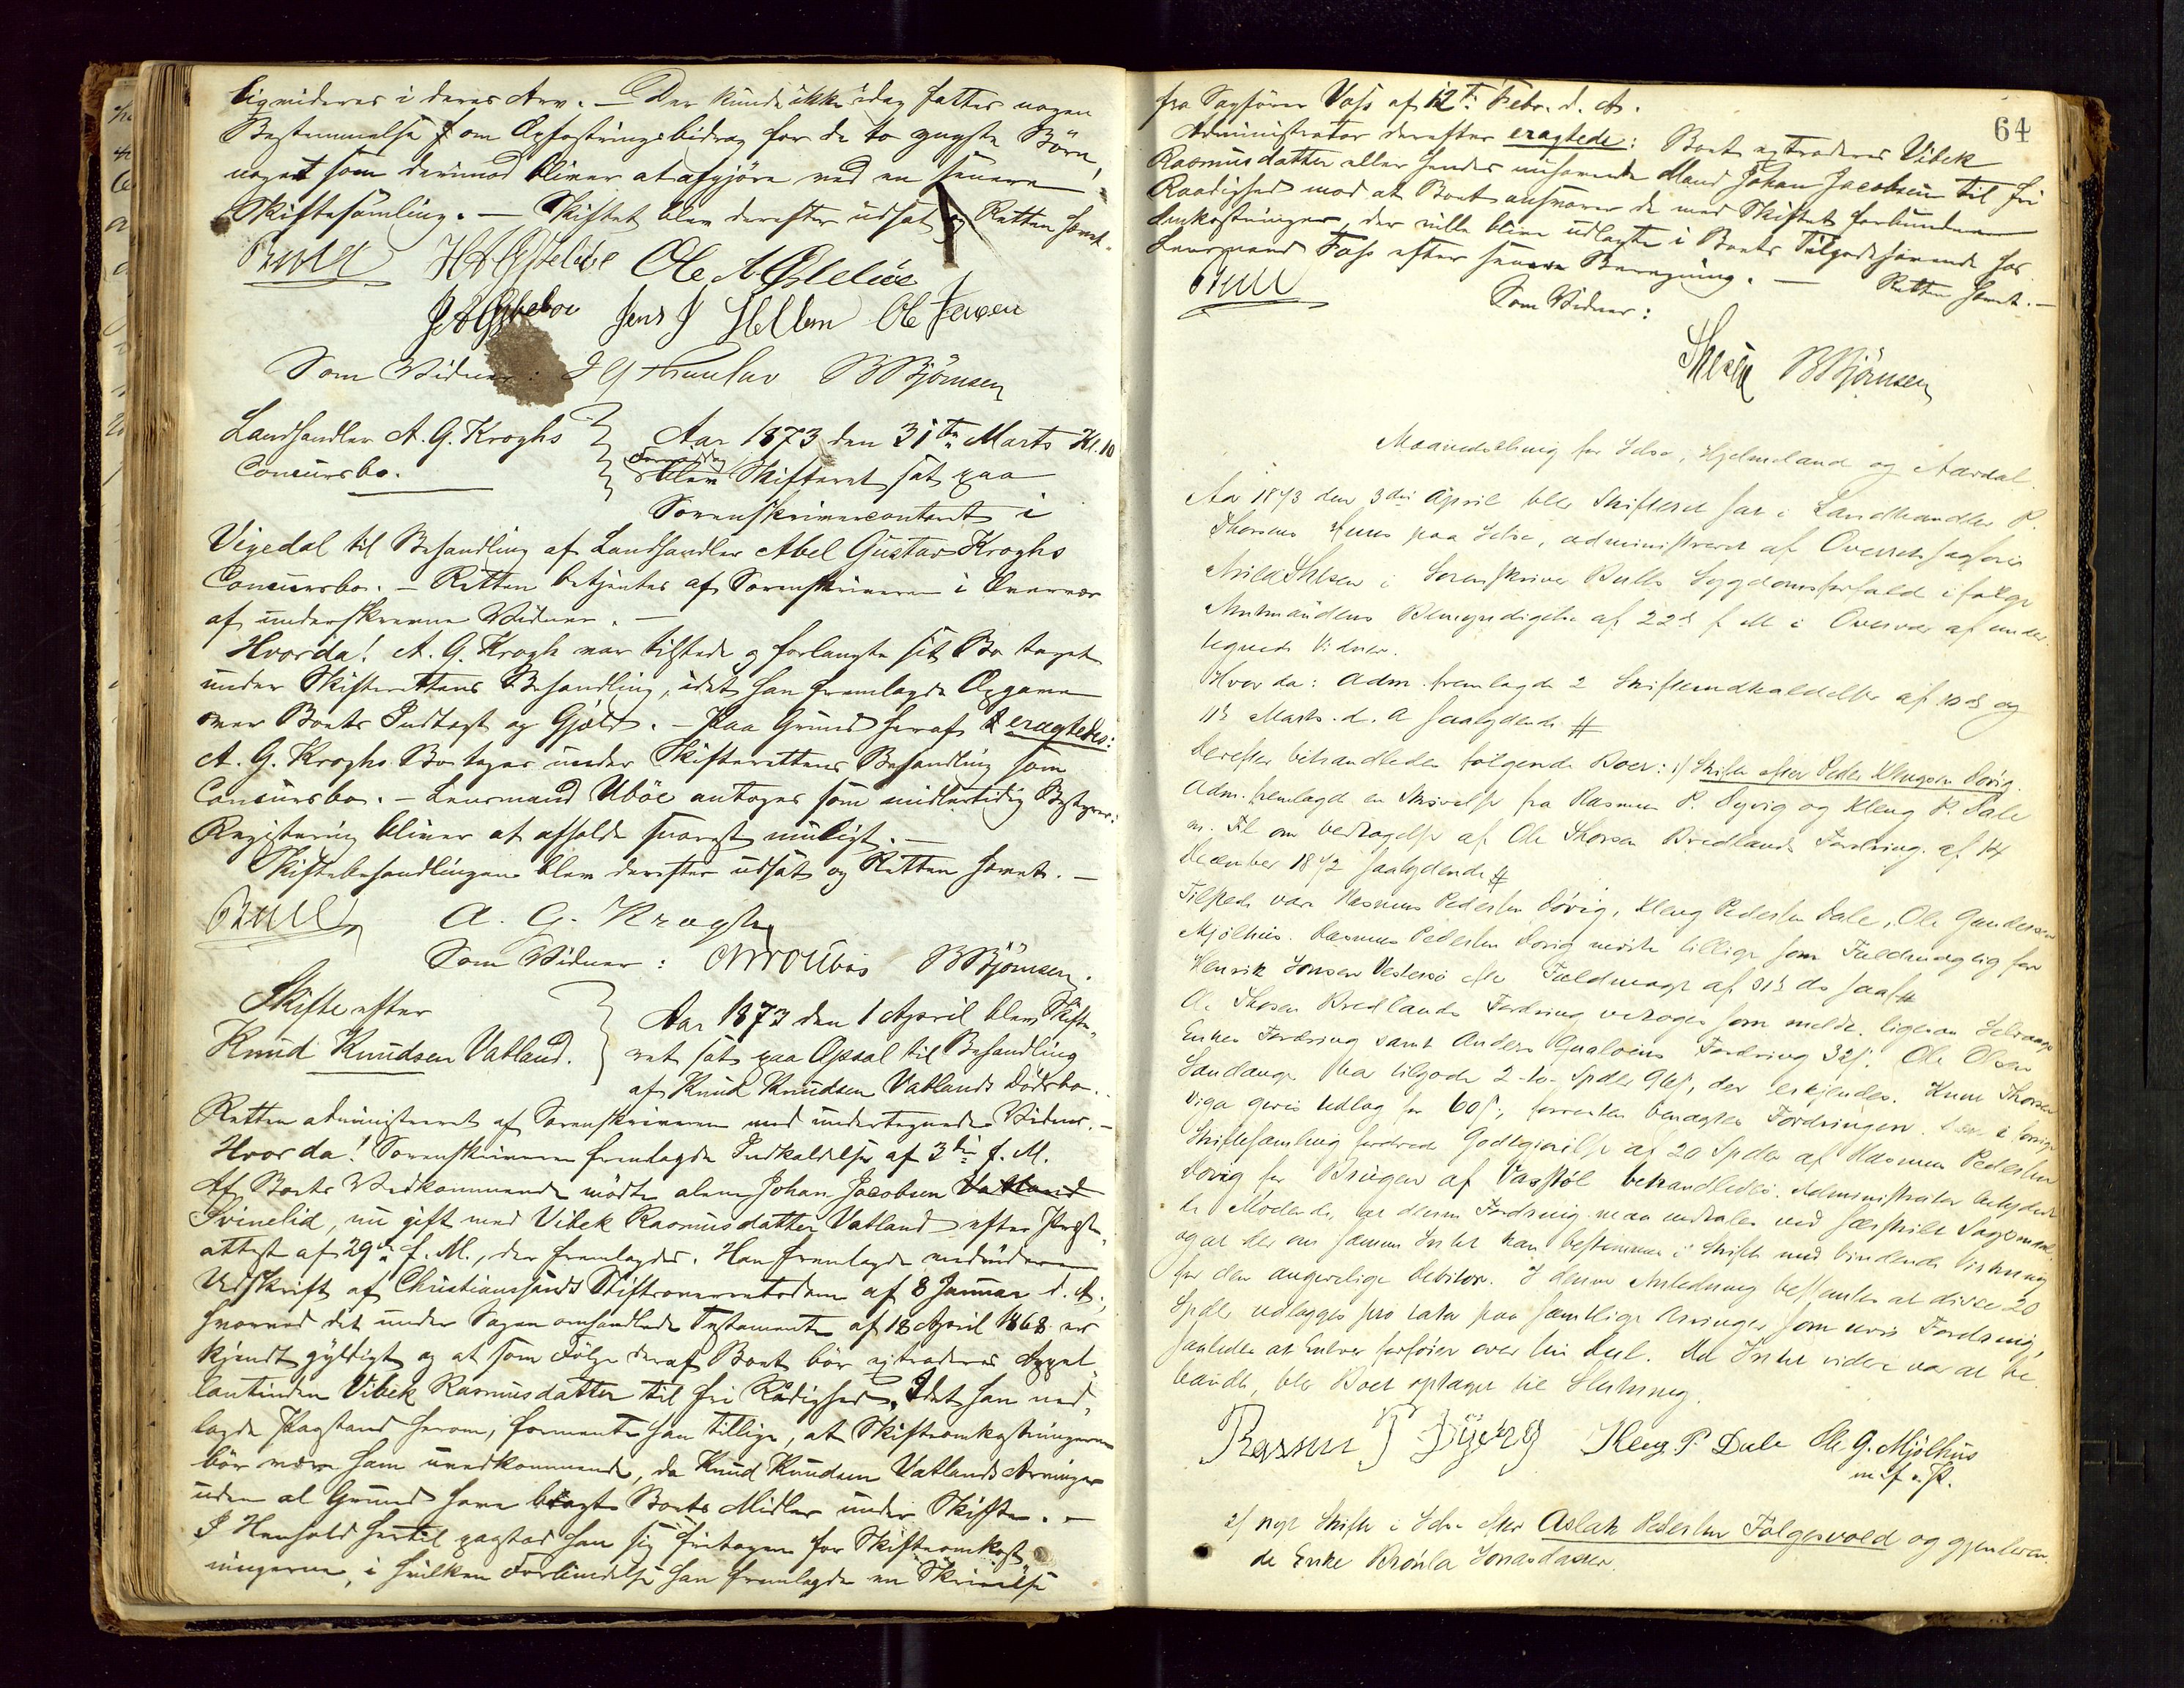 ligvideres i deres Arv. – Der kunde ikke idag fattes nogen
Bestemmelse om Opfostringsbidrag for de to yngste Börn,
noget som derimod bliver at afgjöre ved en senere
Skiftesamling. – Skiftet blev derefter udsat og Retten hævet.
Bull H A Østeböe Ole A Østeböe
J A Østeboe Jens J Hellem Ole Jensen
Som Vidner: B Björnsen
Landhandler A. G. Kroghs
Concursbo.
Aar 1873 den 31te Marts Kl. 10
Formiddag blev Skifteret sat paa
Sorenskrivercontoret i
Vigedal til Behandling af Landhandler Abel Gustav Kroghs
Concursbo. – Retten betjentes af Sorenskriveren i Overvær
af underskrevne Vidner. –
Hvorda! A. G. Krogh var tilstede og forlangte sit Bo taget
under Skifterettens Behandling, idet han fremlagde Opgave
over Boets Indtægt og Gjæld. – Paa Grund heraf eragtedes:
A. G. Kroghs Bo tages under Skifterettens Behandling som
Concursbo. – Lensmand Uböe antages som midlertidig Bestyrer.
Registrering bliver at afholde snarest muligt. –
Skiftebehandlingen blev derefter udsat og Retten hævet. –
Bull A. G. Krogh
Som Vidner: B Björnsen.
Skifte efter
Knud Knudsen Vatland.
Aar 1873 den 1 April blev Skifte-
ret sat paa Opsal til Behandling
af Knud Knudsen Vatlands Dödsbo.
Retten administreret af Sorenskriveren med undertegnede Vidner. –
Hvorda! Sorenskriveren fremlagde Indkaldelse af 3die f. M.
Af Boets Vedkommende mödte alene Johan Jacobsen Vatland
Svinelid, nu gift med Vibek Rasmusdatter Vatland efter Præste-
attest af 29de f. M., der fremlagdes. Han fremlagde endvidere
Udskrift af Christianssands Stiftsoverretsdom af 8 Januar d. A.,
hvorved det under Sagen omhandlede Testamente af 18 April 1868 er
kjendt gyldigt og at som Fölge deraf Boet bör extraderes Appel-
lantinden Vibek Rasmusdatter til fri Rådighed. Idet han ned-
lagde Paastand herom, formente han tillige, at Skifteomkostningerne
bör være ham uvedkommende, da Knud Knudsen Vatlands Arvinger
uden al Grund have bragt Boets Midler under Skifte. –
I Henhold hertil paastod han sig fritagen for Skifteomkost-
ningerne, i hvilken Forbindelse han fremlagde en Skrivelse
64
fra Sagförer Vass af 12te Febr. d. A.
Administrator derefter eragtede: Boet extraderes Vibek
Rasmusdatter eller hendes nuhavende Mand Johan Jacobsen til fri
Raadighed mod at Boet ansvarer de med Skiftet forbundne
Omkostninger, der ville blive udlagte i Boets Tilgodehavende hos
Lensmand Foss efter senere Beregning. – Retten hævet. –
Bull Som Vidner:
B Björnsen
Maanedsthing for Jelse, Hjelmeland og Aardal.
Aar 1873 den 3die April blev Skifteret sat i Landhandler P.
Thorsens Huus paa Jelse, administreret af Overretssagförer
i Sorenskriver Bulls Sygdomsforfald ifölge
Amtmandens Bemyndigelse af 22de f M i Overvær af under-
tegnede Vidner.
Hvor da: Adm. fremlagde 2 Skifteindkaldelser af 10de og
11te Marts. d. A saalydende #
Derefter behandledes fölgende Boer: 1) Skifte efter Peder Klengsen Dövig.
Adm. fremlagde en Skrivelse fra Rasmus P. Dyvig og Kleng P. Dale
m. Fl. om Vedtagelse af Ole Thorsen Bredlands Fordring af 14
December 1872 saalydende #
Tilstede var Rasmus Pedersen Dövig, Kleng Pedersen Dale, Ole Gundersen
Mjölhus. Rasmus Pedersen Dövig mödte tillige som Fuldmægtig for
Henrik Jonsen Vestersö efter Fuldmagt af 31te ds saal. #
Ole Thorsen Bredlands Fordring vedtoges som meldt, ligesaa
Enkes Fordring samt Anders Fordring 32 s. Ole Olsen
Sandanger har tilgode 2-to- Spdlr 96 s, der erkjendes. Knu Thorsen
Viga gives Udlag for 60 s, forresten benægtes Fordringen. Den i forrige
Skiftesamling fordrede Godtgjörelse af 20 Spdlr af Rasmus Pedersen
Dövig for Brugen af Vasstöl behandledes. Administrator betydede
de Mödende, at denne Fordring maa indtales ved særskilt Sögsmaal
og at der om samme Intet kan bestemmes i Skifte med bindende Virkning
for den angivelige Debitor. I denne Anledning bestemtes at disse 20
Spdlr udlægges pro rata paa samtlige Arvinger som uvis Fordring,
saaledes at Enhver forföier over sin Deel. Da Intet videre var at be-
handle, blev Boet optaget til Slutning.
Rasmus P Dyvig Kleng P. Dale Ole G. Mjölhus
m. f. P.
2/ nyt Skifte i Jelse efter Aslak Pedersen Folgesvold og gjenleven-
de Enke Jonasdatter.